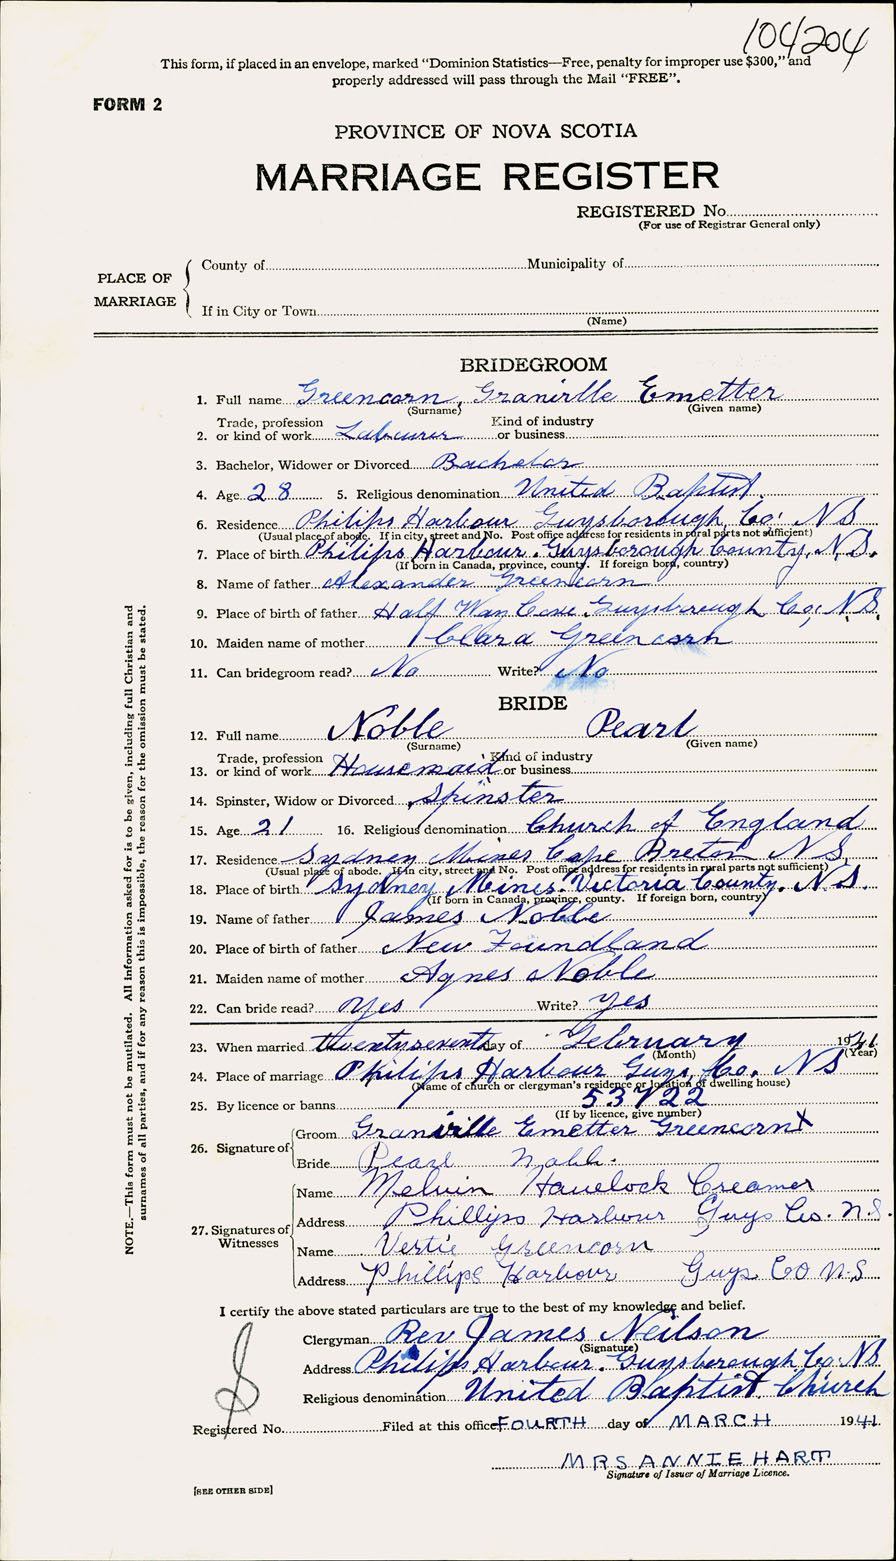 104204
This form, if placed in an envelope, marked "Dominion Statistics—Free, penalty for improper use $300," and
properly addressed will pass through the Mail "FREE".
FORM 2
PROVINCE OF NOVA SCOTIA
MARRIAGE REGISTER
REGISTERED No.
(For use of Registrar General only)
PLACE OF MARRIAGE
County of Municipality of
If in City or Town
(Name)
BRIDEGROOM
1. Full name Greencorn, Granville Emetter
(Surname) (Given name)
Trade, profession Kind of industry
2. or kind of work Labourer or business
3. Bachelor, Widower or Divorced Bachelor
4. Age 28 5. Religious denomination United Baptist.
6. Residence Philips Harbour Guysborough, Co: NS
(Usual place of abode. If in city, street and No. Post office address for residents in rural parts not sufficient)
7. Place of birth Philips Harbour. Guysborough County, N.S.
(If born in Canada, province, county. If foreign born, country)
8. Name of father Alexander Greencorn
9. Place of birth of father Half Way Cove Guysborough Co; N.S.
10. Maiden name of mother Clara Greencorn
11. Can bridegroom read? No Write? No
BRIDE
12. Full name Noble Pearl
(Surname) (Given name)
Trade, profession Kind of industry
13. or kind of work Housemaid or business
14. Spinster, Widow or Divorced Spinster
15. Age 21 16. Religious denomination Church of England
17. Residence Sydney Mines Cape Breton NS
(Usual place of abode. If in city, street and No. Post office address for residents in rural parts not sufficient)
18. Place of birth Sydney Mines. Victoria County. N.S.
(If born in Canada, province, county. If foreign born, country)
19. Name of father James Noble
20. Place of birth of father New Foundland
21. Maiden name of mother Agnes Noble
22. Can bride read? Yes Write? Yes
23. When married twentyseventh day of February 1941
(Month) (Year)
24. Place of marriage Philips Harbour Guys, Co. NS
(Name of church or clergyman's residence or location of dwelling house)
25. By licence or banns 53722
(If by licence, give number)
26. Signature of
Groom Granville Emetter Greencorn X
Bride Pearl Noble.
27. Signatures of Witnesses
Name Melvin Havelock Creamer
Address Phillips Harbour Guys Co. N.S.
Name Vertie Greencorn
Address Phillips Harbour Guys Co N-S
NOTE.—This form must not be mutilated. All information asked for is to be given, including full Christian and
surnames of all parties, and if for any reason this is impossible, the reason for the omission must be stated.
I certify the above stated particulars are true to the best of my knowledge and belief.
Clergyman Rev James Neilson
(Signature)
Address Philips Harbour. Guysborough Co: NS
Religious denomination United Baptist Church
Registered No. Filed at this office FOURTH day of MARCH 1941
MRS ANNIE HART
Signature of Issuer of Marriage Licence.
[SEE OTHER SIDE]